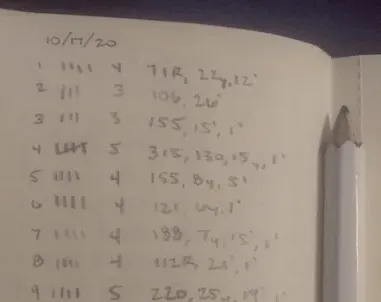 10/17/20
1 |||| 4 71R, 22y, 12'
2 ||| 3 106, 26'
3 ||| 3 155, 15', 1'
4 5 315, 130, 15y, 1'
5 |||| 4 155, 8y, 5'
6 |||| 4 121, 1'
7 |||| 4 188, 7y, 15', 1'
8 |||| 4 112R, 1'
9 |||| 5 220, 25y, 19'